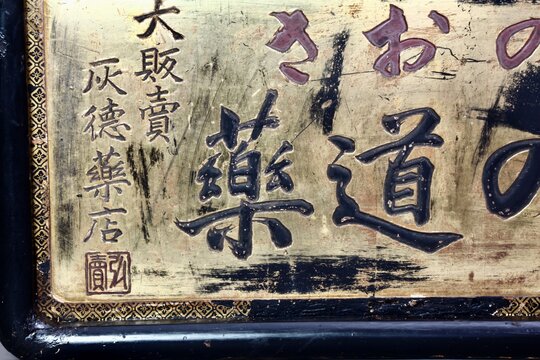 のおさ
の道藥
大販賣
灰徳藥店
弘賣